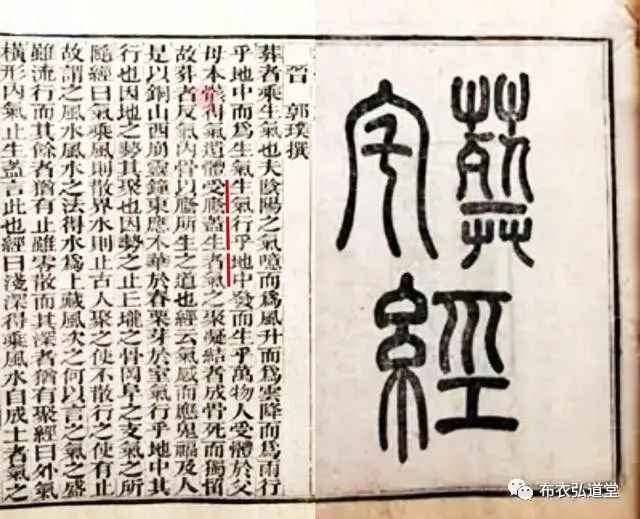 葬
經
晉 郭璞撰
葬者乘生氣也夫陰陽之氣噫而爲風升而爲雲降而爲雨行
乎地中而爲生氣生氣行乎地中發而生乎萬物人受體於父
母本骸得氣遺體受廕蓋生者氣之聚凝結者成骨死而獨留
故葬者反氣內骨以廕所生之道也經云氣感而應鬼福及人
是以銅山西崩靈鐘東應木華於春栗芽於室氣行乎地中其
行也因地之勢其聚也因勢之止丘壠之骨岡阜之支氣之所
隨經曰氣乘風則散界水則止古人聚之使不散行之使有止
故謂之風水風水之法得水爲上藏風次之何以言之氣之盛
雖流行而其餘者猶有止雖零散而其深者猶有聚經曰外氣
橫形內氣止生蓋言此也經曰淺深得乘風水自成土者氣之
布衣弘道堂